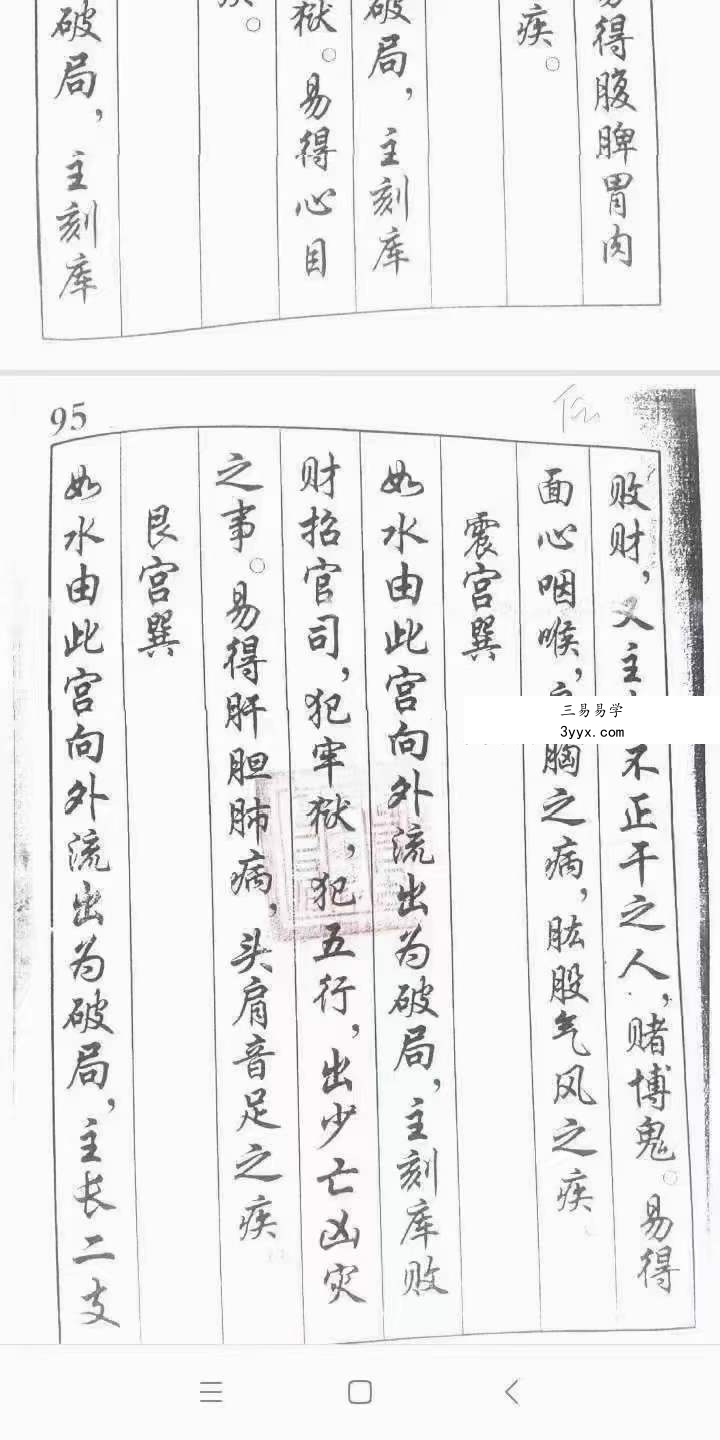 易得腹脾胃肉
疾。
破局，主刻库
狱。易得心目
疾。
破局，主刻库
95
败财，又主不正干之人，赌博鬼。易得
面心咽喉，胸之病，肱股气风之疾
震宫巽
如水由此宫向外流出为破局，主刻库败
财招官司，犯牢狱，犯五行，出少亡凶灾
之事。易得肝胆肺病，头肩音足之疾
艮宫巽
如水由此宫向外流出为破局，主长二支
三易易学
3yyx.com